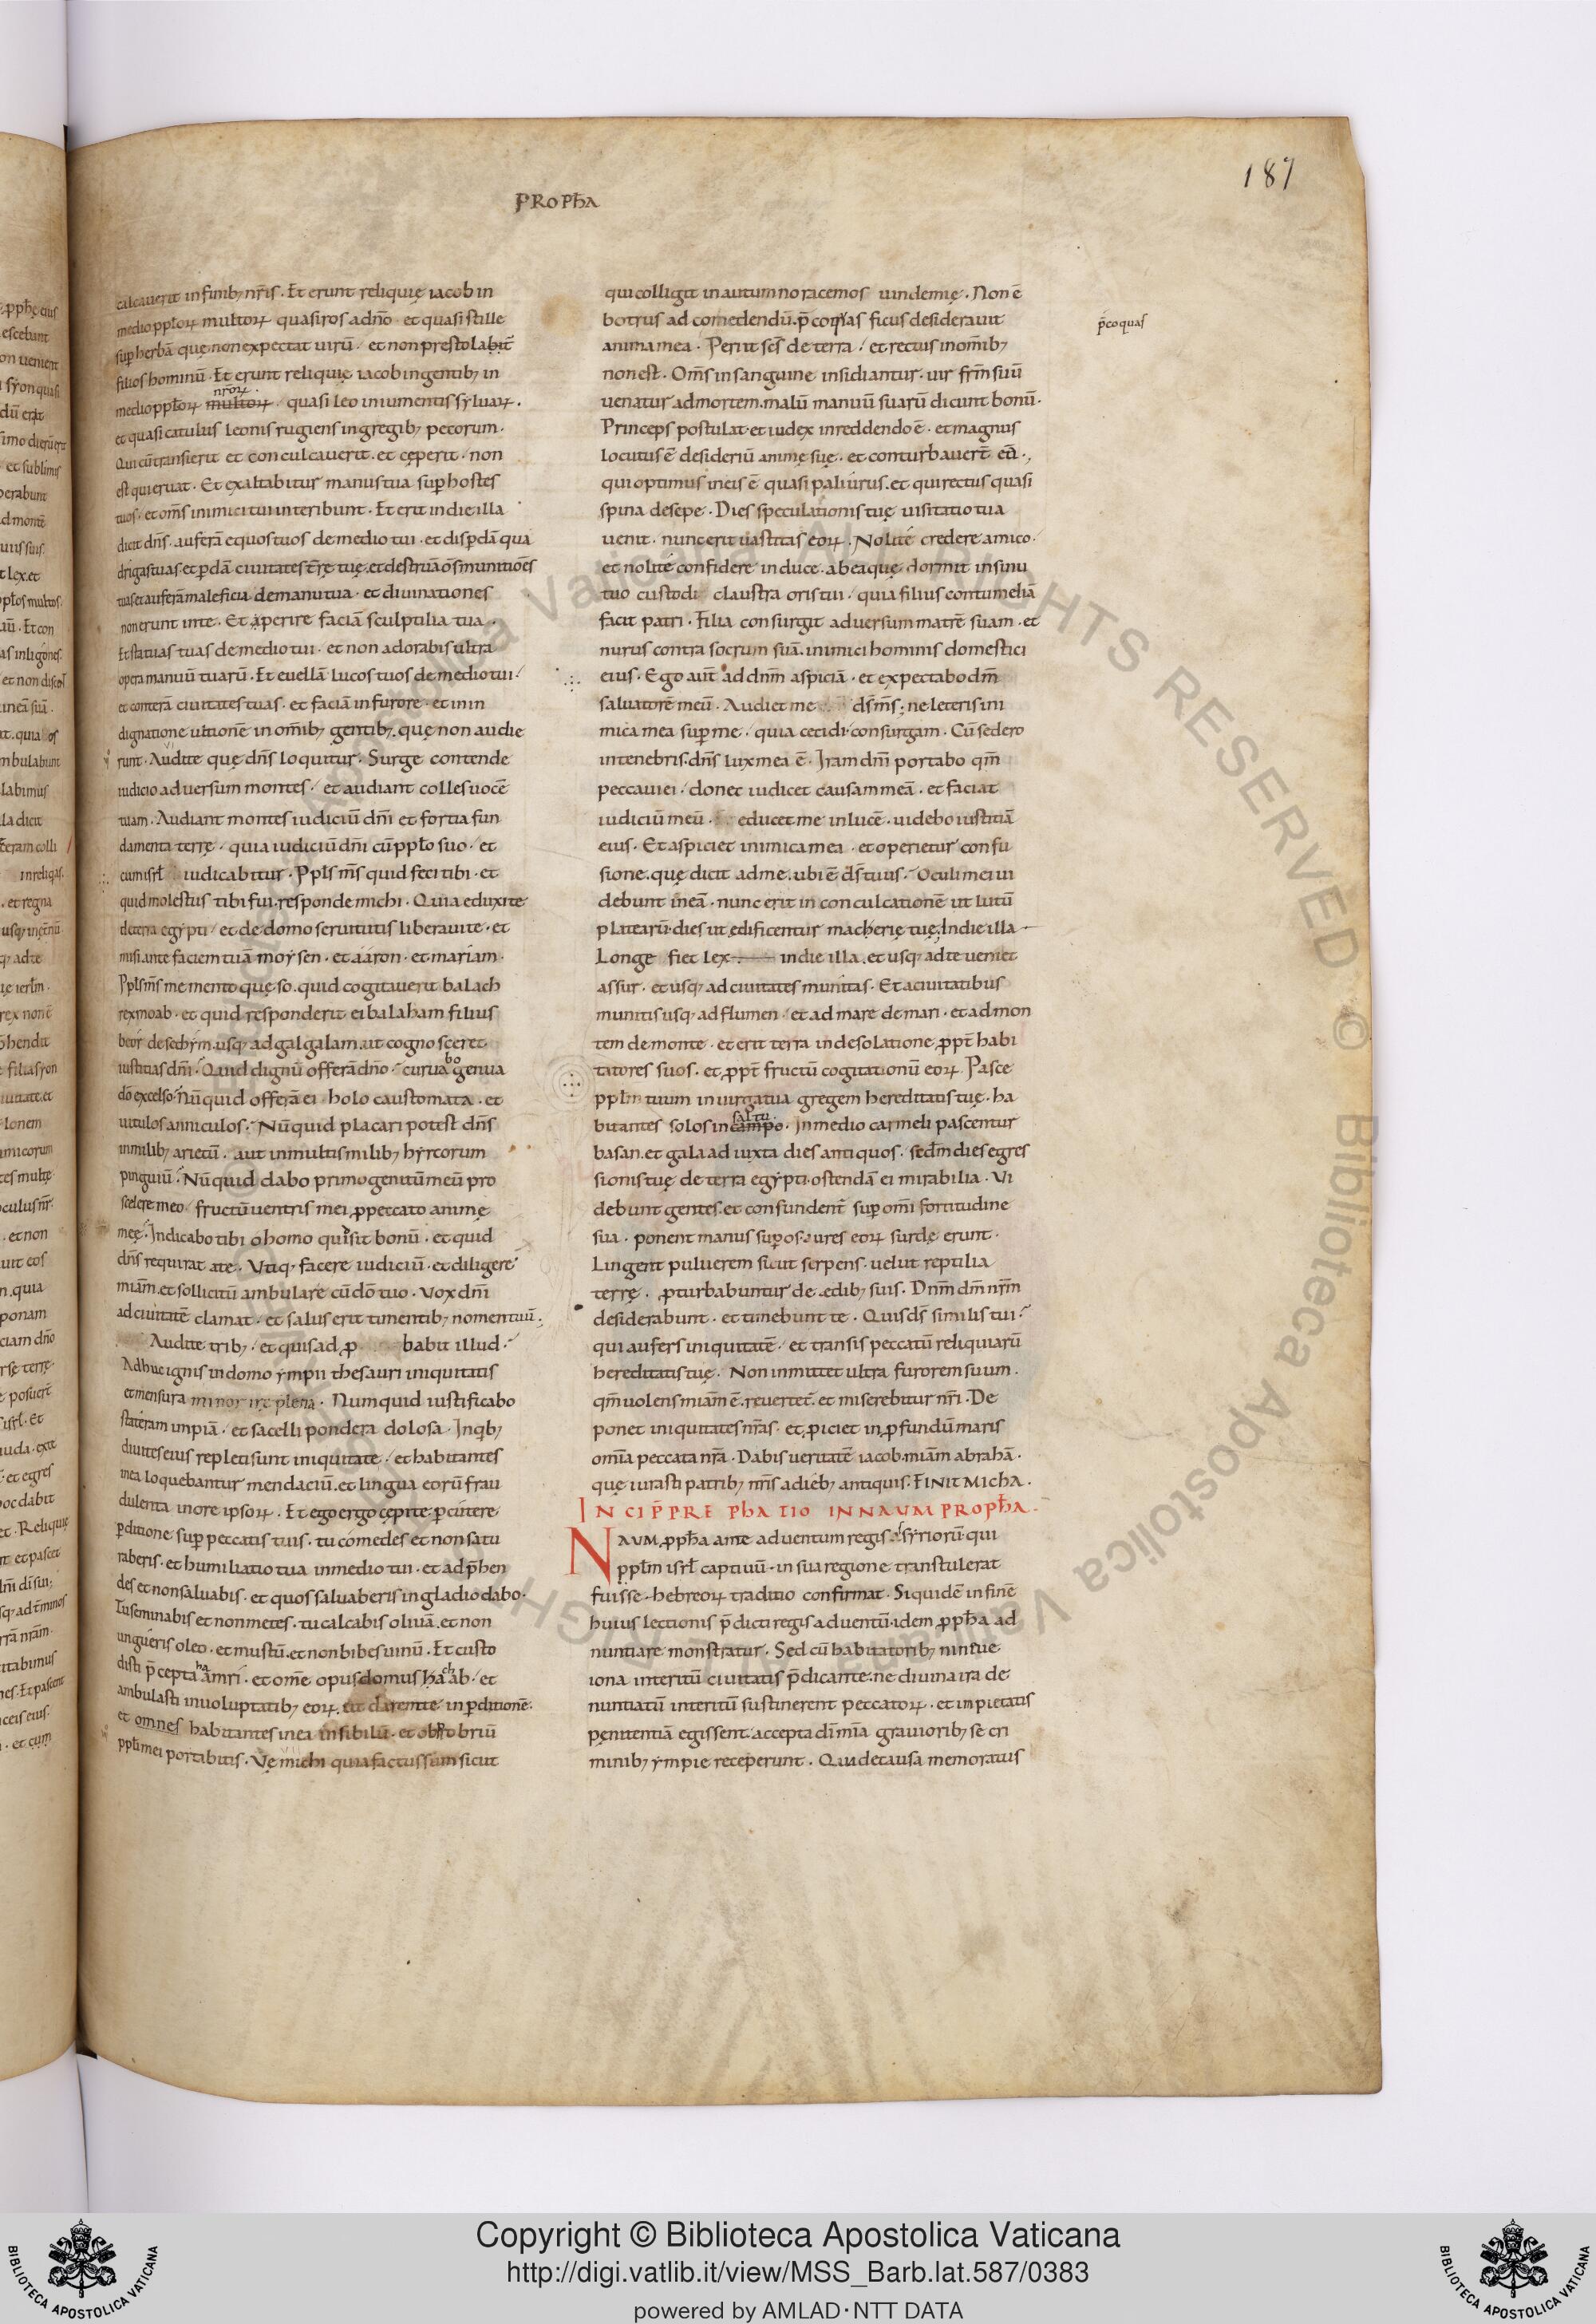 187
PROPħA
calcauerit in finibꝫ nr̄is · Et erunt reliquię iacob in
medio ppl̄oꝝ multoꝝ quasi ros a dn̄o · et quasi stillę
sup herbā quę non expectat uirū · et non prestolabit̄
filios hominū · Et erunt reliquię iacob in gentibꝫ in
nr̄oꝝ
medio ppl̄oꝝ multoꝝ quasi leo in iumentis syluaꝝ ·
et quasi catulus leonis rugiens in gregibꝫ pecorum ·
Qui cū transierit et conculcauerit · et cęperit · non
est qui eruat · Et exaltabitur manus tua sup hostes
tuos · et om̄s inimici tui interibunt · Et erit in die illa
dicit dn̄s · auferā equos tuos de medio tui · et dispdā qua
drigas tuas · et pdā ciuitates t̄rę tuę · et destruā om̄s munitiōes
tuas et auferā maleficia de manu tua · et diuinationes
non erunt in te · Et aperire faciā sculptilia tua ·
Et statuas tuas de medio tui · et non adorabis ultra
opera manuū tuarū · Et euellā lucos tuos de medio tui ·
et conterā ciuitates tuas · et faciā in furore · et in in
dignatione ultionē in om̄ibꝫ gentibꝫ · quę non audie
runt · Audite quę dn̄s loquitur · Surge contende
iudicio aduersum montes · et audiant colles uocē
tuam · Audiant montes iudiciū dn̄i et fortia fun
damenta terrę · quia iudiciū dn̄i cū ppl̄o suo · et
cum isrł iudicabitur · Ppl̄s m̄s quid feci tibi · et
quid molestus tibi fui · responde michi · Quia eduxi te
de terra egypti · et de domo seruitutis liberaui te · et
misi ante faciem tuā moysen · et ááron · et mariam ·
Ppl̄s m̄s memento quęso · quid cogitauerit balach
rex moab · et quid responderit ei balaham filius
beór de sechym · usqꝫ ad galgalam · ut cognosceret
iustitias dn̄i · Quid dignū offerā dn̄o · curua bo genua
dō excelso · Nūquid offerā ei · holocaustomata · et
uitulos anniculos · Nūquid placari potest dn̄s
in milibꝫ arietū · aut in multis milibꝫ hyrcorum
pinguiū · Nūquid dabo primogenitū meū pro
scelere meo · fructū uentris mei · ꝓ peccato animę
meę · Indicabo tibi o homo quid sit bonū · et quid
dn̄s requirat a te · Vtiqꝫ facere iudiciū · et diligere
miām · et sollicitū ambulare cū dō tuo · Vox dn̄i
ad ciuitatē clamat · et salus erit timentibꝫ nomen tuū ·
Audite tribꝫ · et quis adꝓbabit illud ·
Adhuc ignis in domo ympii thesauri iniquitatis
et mensura minor irę plena · Numquid iustificabo
stateram impiā · et sacelli pondera dolosa · In qbꝫ
diuites eius repleti sunt iniquitate · et habitantes
in ea loquebantur mendaciū · et lingua eorū frau
dulenta in ore ipsoꝝ · Et ego ergo cępi te pcutere
pditione sup peccatis tuis · tu cómedes et non satu
raberis · et humiliatio tua in medio tui · et adp̄hen
des et non saluabis · et quos saluaberis in gladio dabo ·
Tu seminabis et non metes · tu calcabis oliuā · et non
ungueris oleo · et mustū · et non bibes uinū · Et custo
disti p̄cepta amri · et om̄e opus domus hachab · et
ambulasti in uoluptatibꝫ eoꝝ · ut darem te in pditionē ·
et omnes habitantes in ea in sibilū · et obprobriū
ppl̄i mei portabitis · Vę michi quia factus sum sicut
qui colligit in autumno racemos uindemię · Non ē
botrus ad comedendū · p̄coquas ficus desiderauit
p̄coquas
anima mea · Periit scs̄ de terra · et rectus in om̄ibꝫ
non est · Om̄s in sanguine insidiantur · uir frm̄ suū
uenatur ad mortem · malū manuū suarū dicunt bonū ·
Princeps postulat · et iudex in reddendo ē · et magnus
locutus ē desideriū animę suę · et conturbauer̄t eā ·
qui optimus in eis ē quasi paliurus · et qui rectus quasi
spina de sepe · Dies speculationis tuę uisitatio tua
uenit · nunc erit uastitas eoꝝ · Nolite credere amico ·
et nolite confidere in duce · ab ea quę dormit in sinu
tuo custodi claustra oris tui · quia filius contumeliā
facit patri · Filia consurgit aduersum matrē suam · et
nurus contra socrum suā · inimici hominis domestici
eius · Ego aut̄ ad dn̄m aspiciā · et expectabo dm̄
saluatorē meū · Audiet me ds̄ m̄s · ne leteris ini
mica mea sup me · quia cecidi · consurgam · Cū sedero
in tenebris · dn̄s lux mea ē · Iram dn̄i portabo qm̄
peccaui ei · donec iudicet causam meā · et faciat
iudiciū meū · educet me in lucē · uidebo iustitiā
eius · Et aspiciet inimica mea · et operietur confu
sione · quę dicit ad me · ubi ē ds̄ tuus · Oculi mei ui
debunt in eā · nunc erit in conculcationē ut lutū
platearū · dies ut ędificentur macherię tuę · In die illa
Longe fiet lex · in die illa · et usqꝫ ad te ueniet
assur · et usqꝫ ad ciuitates munitas · Et a ciuitatibus
munitis usqꝫ ad flumen · et ad mare de mari · et ad mon
tem de monte · et erit terra in desolatione ꝓpt̄ habi
tatores suos · et ꝓpt̄ fructū cogitationū eoꝝ · Pasce
ppl̄m tuum in uirga tua gregem hereditatis tuę · ha
saltu
bitantes solos in campo · In medio carmeli pascentur
basan · et galaad iuxta dies antiquos · scdm̄ dies egres
sionis tuę de terra egypti · ostendā ei mirabilia · Vi
debunt gentes · et confundent̄ sup om̄i fortitudine
sua · ponent manus sup os · aures eoꝝ surdę erunt ·
Lingent puluerem sicut serpens · uelut reptilia
terrę · pturbabuntur de ędibꝫ suis · Dn̄m dm̄ nr̄m
desiderabunt · et timebunt te · Quis ds̄ similis tui ·
qui aufers iniquitatē · et transis peccatū reliquiarū
hereditatis tuę · Non inmittet ultra furorem suum ·
qm̄ uolens miām ē · reuertet̄ · et miserebitur nr̄i · De
ponet iniquitates nr̄as · et ꝓiciet in ꝓfundū maris
om̄ia peccata nr̄a · Dabis ueritatē iacob · miām abrahā ·
quę iurasti patribꝫ nr̄is a diebꝫ antiquis · FINIT MICHA ·
INCIP̄ PREPHATIO IN NAVM PROPħA ·
NAVM ꝓpħa ante aduentum regis assyriorū · qui
ppl̄m isrł captiuū · in sua regione transtulerat
fuisse · hebreoꝝ traditio confirmat · Siquidē in finē
huius lectionis p̄dicti regis aduentū · idem ꝓpħa ad
nuntiare monstratur · Sed cū habitatoribꝫ niniue
iona interitū ciuitatis p̄dicante · ne diuina ira de
nuntiatū interitū sustinerent peccatoꝝ · et impietatis
penitentiā egissent · accepta dī mīa grauioribꝫ se cri
minibꝫ ympie receperunt · Qua de causa memoratus
Copyright © Biblioteca Apostolica Vaticana
http://digi.vatlib.it/view/MSS_Barb.lat.587/0383
powered by AMLAD·NTT DATA